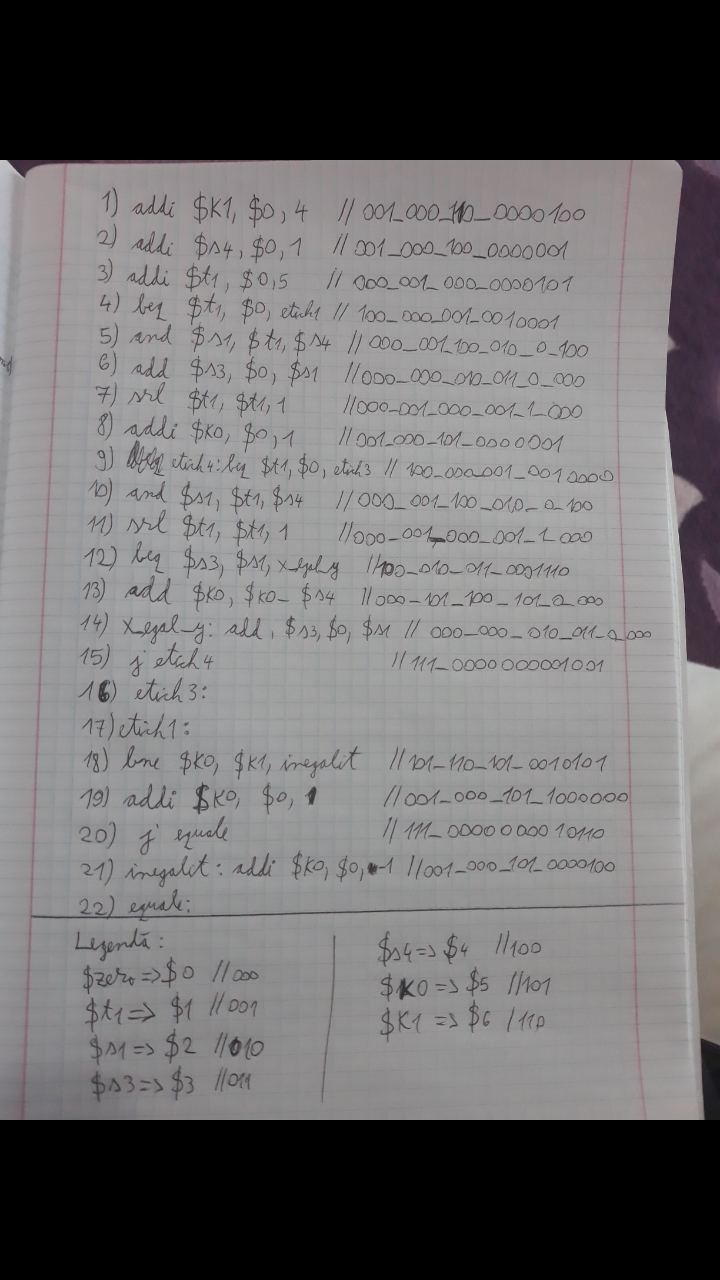 1) addi $K1, $0, 4 // 001_000_110_0000100
2) addi $s4, $0, 1 // 001_000_100_0000001
3) addi $t1, $0, 5 // 000_001_000_0000101
4) beq $t1, $0, etich1 // 100_000_001_0010001
5) and $s1, $t1, $s4 // 000_001_100_010_0_100
6) add $s3, $0, $s1 //000_000_010_011_0_000
7) srl $t1, $t1, 1 //000_001_000_001_1_000
8) addi $K0, $0, 1 //001_000_101_0000001
9) etich4: beq $t1, $0, etich3 // 100_000_001_0010000
10) and $s1, $t1, $s4 //000_001_100_010_0_100
11) srl $t1, $t1, 1 //000_001_000_001_1_000
12) beq $s3, $s1, x_egal_y //100_010_011_0001110
13) add $K0, $K0_ $s4 //000_101_100_101_0_000
14) x_egal_y: add, $s3, $0, $s1 // 000_000_010_011_0_000
15) j etich4 // 111_0000000001001
16) etich3:
17) etich1:
18) bne $K0, $K1, inegalit //101_110_101_0010101
19) addi $K0, $0, 1 //001_000_101_1000000
20) j equale // 111_0000000010110
21) inegalit: addi $K0, $0, -1 //001_000_101_0000100
22) equale:
Legendă:
$zero => $0 //000
$t1 => $1 //001
$s1 => $2 //010
$s3 => $3 //011
$s4 => $4 //100
$K0 => $5 //101
$K1 => $6 /110